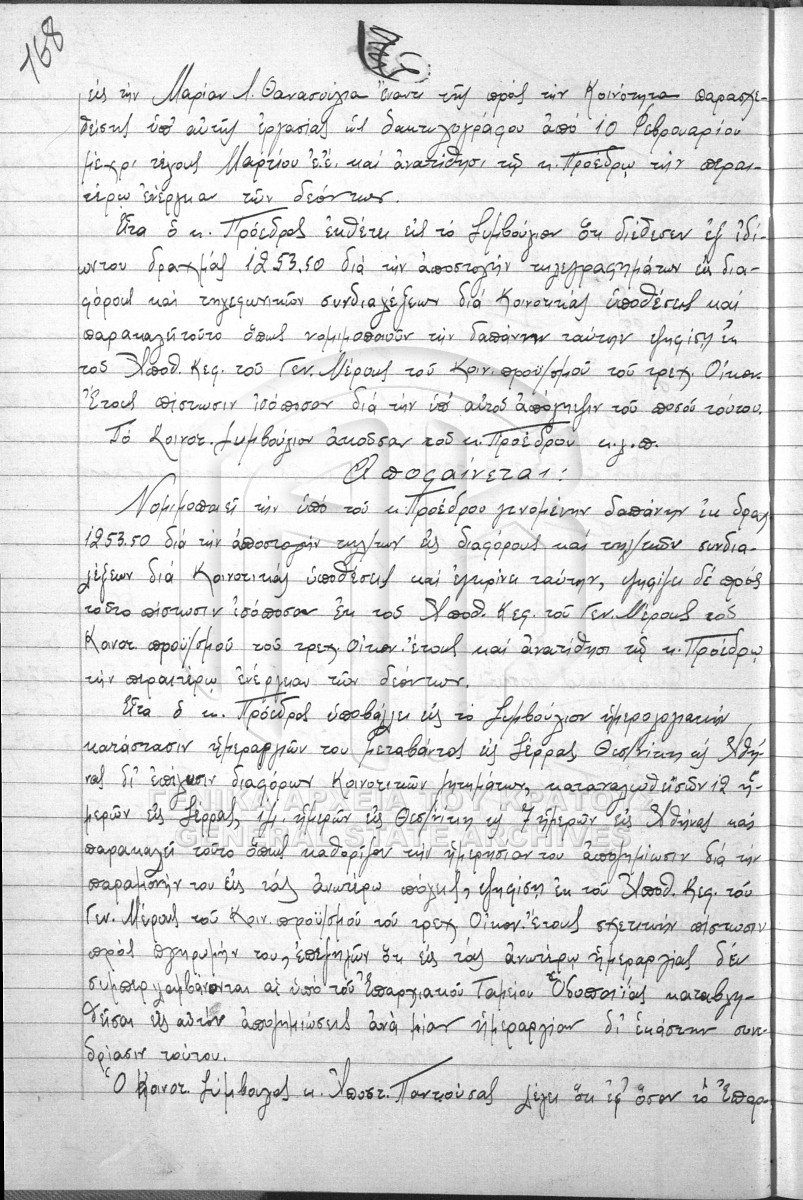 168
εἰς τὴν Μαρίαν Λ. Θανασούλια ἔναντι τῆς πρὸς τὴν Κοινότητα παρασχε-
θείσης ὑπ' αὐτῆς ἐργασίας ὡς δακτυλογράφου ἀπὸ 10 Φεβρουαρίου
μέχρι τέλους Μαρτίου ἐ.ἔ. καὶ ἀνατίθησι τῷ κ. Προέδρῳ τὴν περαι-
τέρω ἐνέργειαν τῶν δεόντων.
Εἶτα ὁ κ. Πρόεδρος ἐκθέτει εἰς τὸ Συμβούλιον ὅτι διέθεσεν ἐξ ἰδί-
ων του δραχμὰς 1253.50 διὰ τὴν ἀποστολὴν τηλεγραφημάτων εἰς δια-
φόρους καὶ τηλεφωνικῶν συνδιαλέξεων διὰ Κοινοτικὰς ὑποθέσεις καὶ
παρακαλεῖ τοῦτο ὅπως νομιμοποιοῦν τὴν δαπάνην ταύτην ψηφίσῃ ἐκ
τοῦ Ἀποθ. Κεφ. τοῦ Γεν. Μέρους τοῦ Κοιν. προϋ/σμοῦ τοῦ τρεχ. Οἰκον.
Ἔτους πίστωσιν ἰσόποσον διὰ τὴν ὑπ' αὐτοῦ ἀπόληψιν τοῦ ποσοῦ τούτου.
Τὸ Κοινοτ. Συμβούλιον ἀκοῦσαν τοῦ κ. Προέδρου κ.λ.π.
Ἀποφαίνεται:
Νομιμοποιεῖ τὴν ὑπὸ τοῦ κ. Προέδρου γενομένην δαπάνην ἐκ δραχ.
1253.50 διὰ τὴν ἀποστολὴν τηλ/των εἰς διαφόρους καὶ τηλ/κῶν συνδια-
λέξεων διὰ Κοινοτικὰς ὑποθέσεις καὶ ἐγκρίνει ταύτην, ψηφίζει δὲ πρὸς
τοῦτο πίστωσιν ἰσόποσον ἐκ τοῦ Ἀποθ. Κεφ. τοῦ Γεν. Μέρους τοῦ
Κοινοτ. προϋ/σμοῦ τοῦ τρεχ. Οἰκον. ἔτους καὶ ἀνατίθησι τῷ κ. Προέδρῳ
τὴν περαιτέρω ἐνέργειαν τῶν δεόντων.
Εἶτα ὁ κ. Πρόεδρος ὑποβάλλει εἰς τὸ Συμβούλιον ἡμερολογιακὴν
κατάστασιν ἡμεραργιῶν του μεταβάντος εἰς Σέρρας, Θεσ/νίκην καὶ Ἀθή-
νας δι' ἐπίλυσιν διαφόρων Κοινοτικῶν ζητημάτων, καταναλωθεισῶν 12 ἡ-
μερῶν εἰς Σέρρας, 14 ἡμερῶν εἰς Θεσ/νίκην καὶ 7 ἡμερῶν εἰς Ἀθήνας καὶ
παρακαλεῖ τοῦτο ὅπως καθορίζον τὴν ἡμερησίαν του ἀποζημίωσιν διὰ τὴν
παραμονήν του εἰς τὰς ἀνωτέρω πόλεις, ψηφίσῃ ἐκ τοῦ Ἀποθ. Κεφ. τοῦ
Γεν. Μέρους τοῦ Κοιν. προϋ/σμοῦ τοῦ τρεχ. Οἰκον. Ἔτους σχετικὴν πίστωσιν
πρὸς πληρωμήν του, ἐπεξηγῶν ὅτι εἰς τὰς ἀνωτέρω ἡμεραργίας δὲν
συμπεριλαμβάνονται αἱ ὑπὸ τοῦ Ἐπαρχιακοῦ Ταμείου Ὁδοποιΐας καταβλη-
θεῖσαι εἰς αὐτὸν ἀποζημιώσεις ἀνὰ μίαν ἡμεραργίαν δι' ἑκάστην συνε-
δρίασιν τούτου.
Ὁ Κοινοτ. Σύμβουλος κ. Ἀποστ. Παντούσας λέγει ὅτι ἐφ' ὅσον τὸ Ἐπαρ-
ΓΕΝΙΚΑ ΑΡΧΕΙΑ ΤΟΥ ΚΡΑΤΟΥΣ
GENERAL STATE ARCHIVES